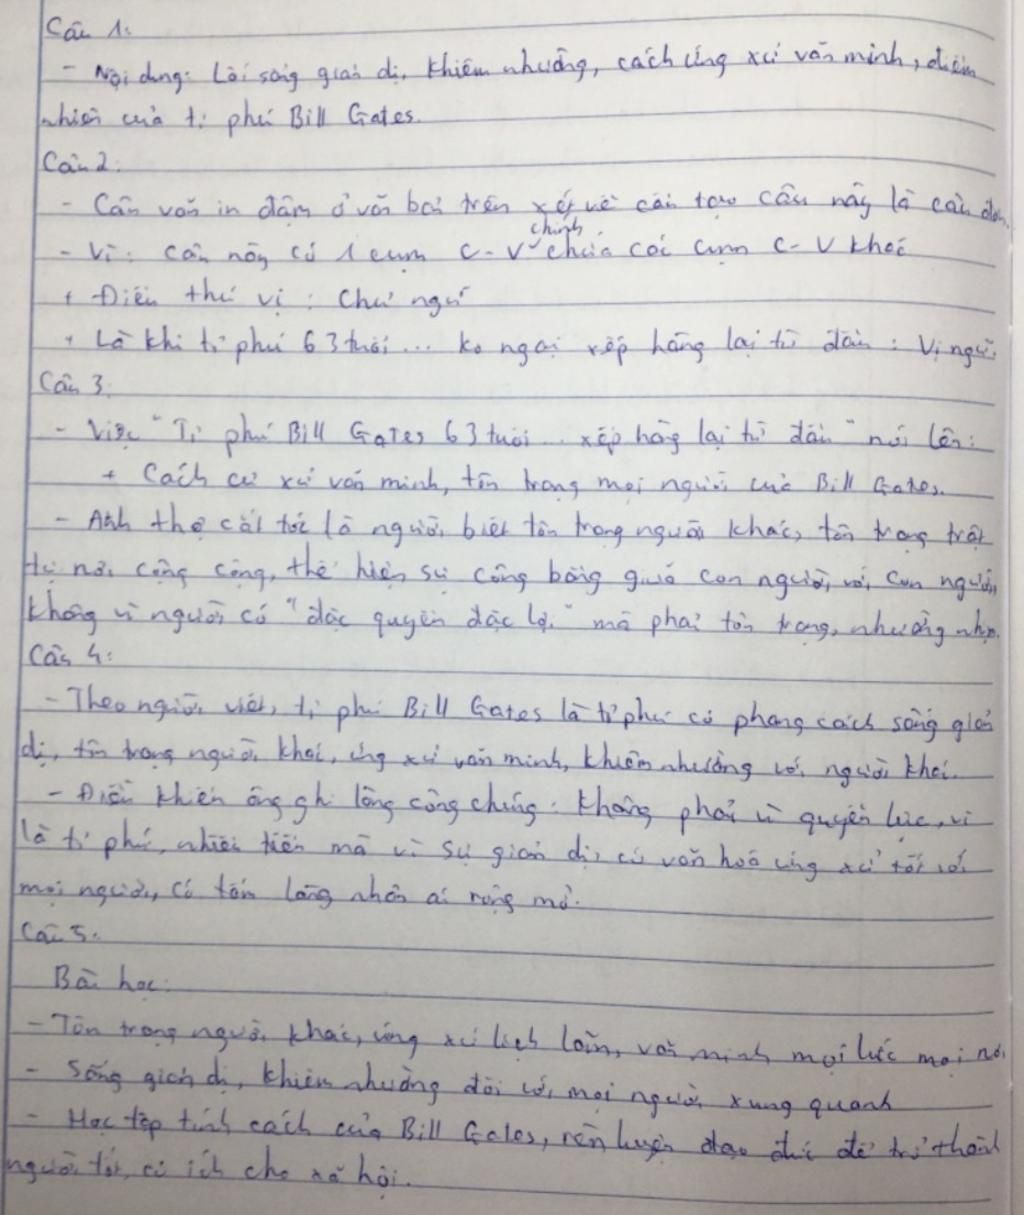 Câu 1:
- Nội dung: Lối sống giản dị, khiêm nhường, cách ứng xử văn minh, điềm
nhiên của tỉ phú Bill Gates.
Câu 2:
- Câu văn in đậm ở văn bản trên xét về cấu tạo câu này là câu đơn.
chính
- Vì: câu này có 1 cụm C-V ˅ chứa các cụm C-V khác
+ Điều thú vị: Chủ ngữ
+ Là khi tỉ phú 63 tuổi... ko ngại xếp hàng lại từ đầu: Vị ngữ.
Câu 3:
- Việc "Tỉ phú Bill Gates 63 tuổi... xếp hàng lại từ đầu" nói lên:
+ Cách cư xử văn minh, tôn trọng mọi người của Bill Gates.
- Anh thợ cắt tóc là người biết tôn trọng người khác, tôn trọng trật
tự nơi công cộng, thể hiện sự công bằng giuã con người với con người,
không vì người có "đặc quyền đặc lợi" mà phải tôn trọng, nhường nhịn.
Câu 4:
- Theo người viết, tỉ phú Bill Gates là tỉ phú có phong cách sống giản
dị, tôn trọng người khác, ứng xử văn minh, khiêm nhường với người khác.
- Điều khiến ông ghi lòng công chúng: không phải vì quyền lực, vì
là tỉ phú, nhiều tiền mà vì sự giản dị, có văn hoá ứng xử tốt với
mọi người, có tấm lòng nhân ái rộng mở.
Câu 5:
Bài học:
- Tôn trọng người khác, ứng xử lịch lãm, văn minh mọi lúc mọi nơi
- Sống giản dị, khiêm nhường đối với mọi người xung quanh
- Học tập tính cách của Bill Gates, rèn luyện đạo đức để trở thành
người tốt, có ích cho xã hội.